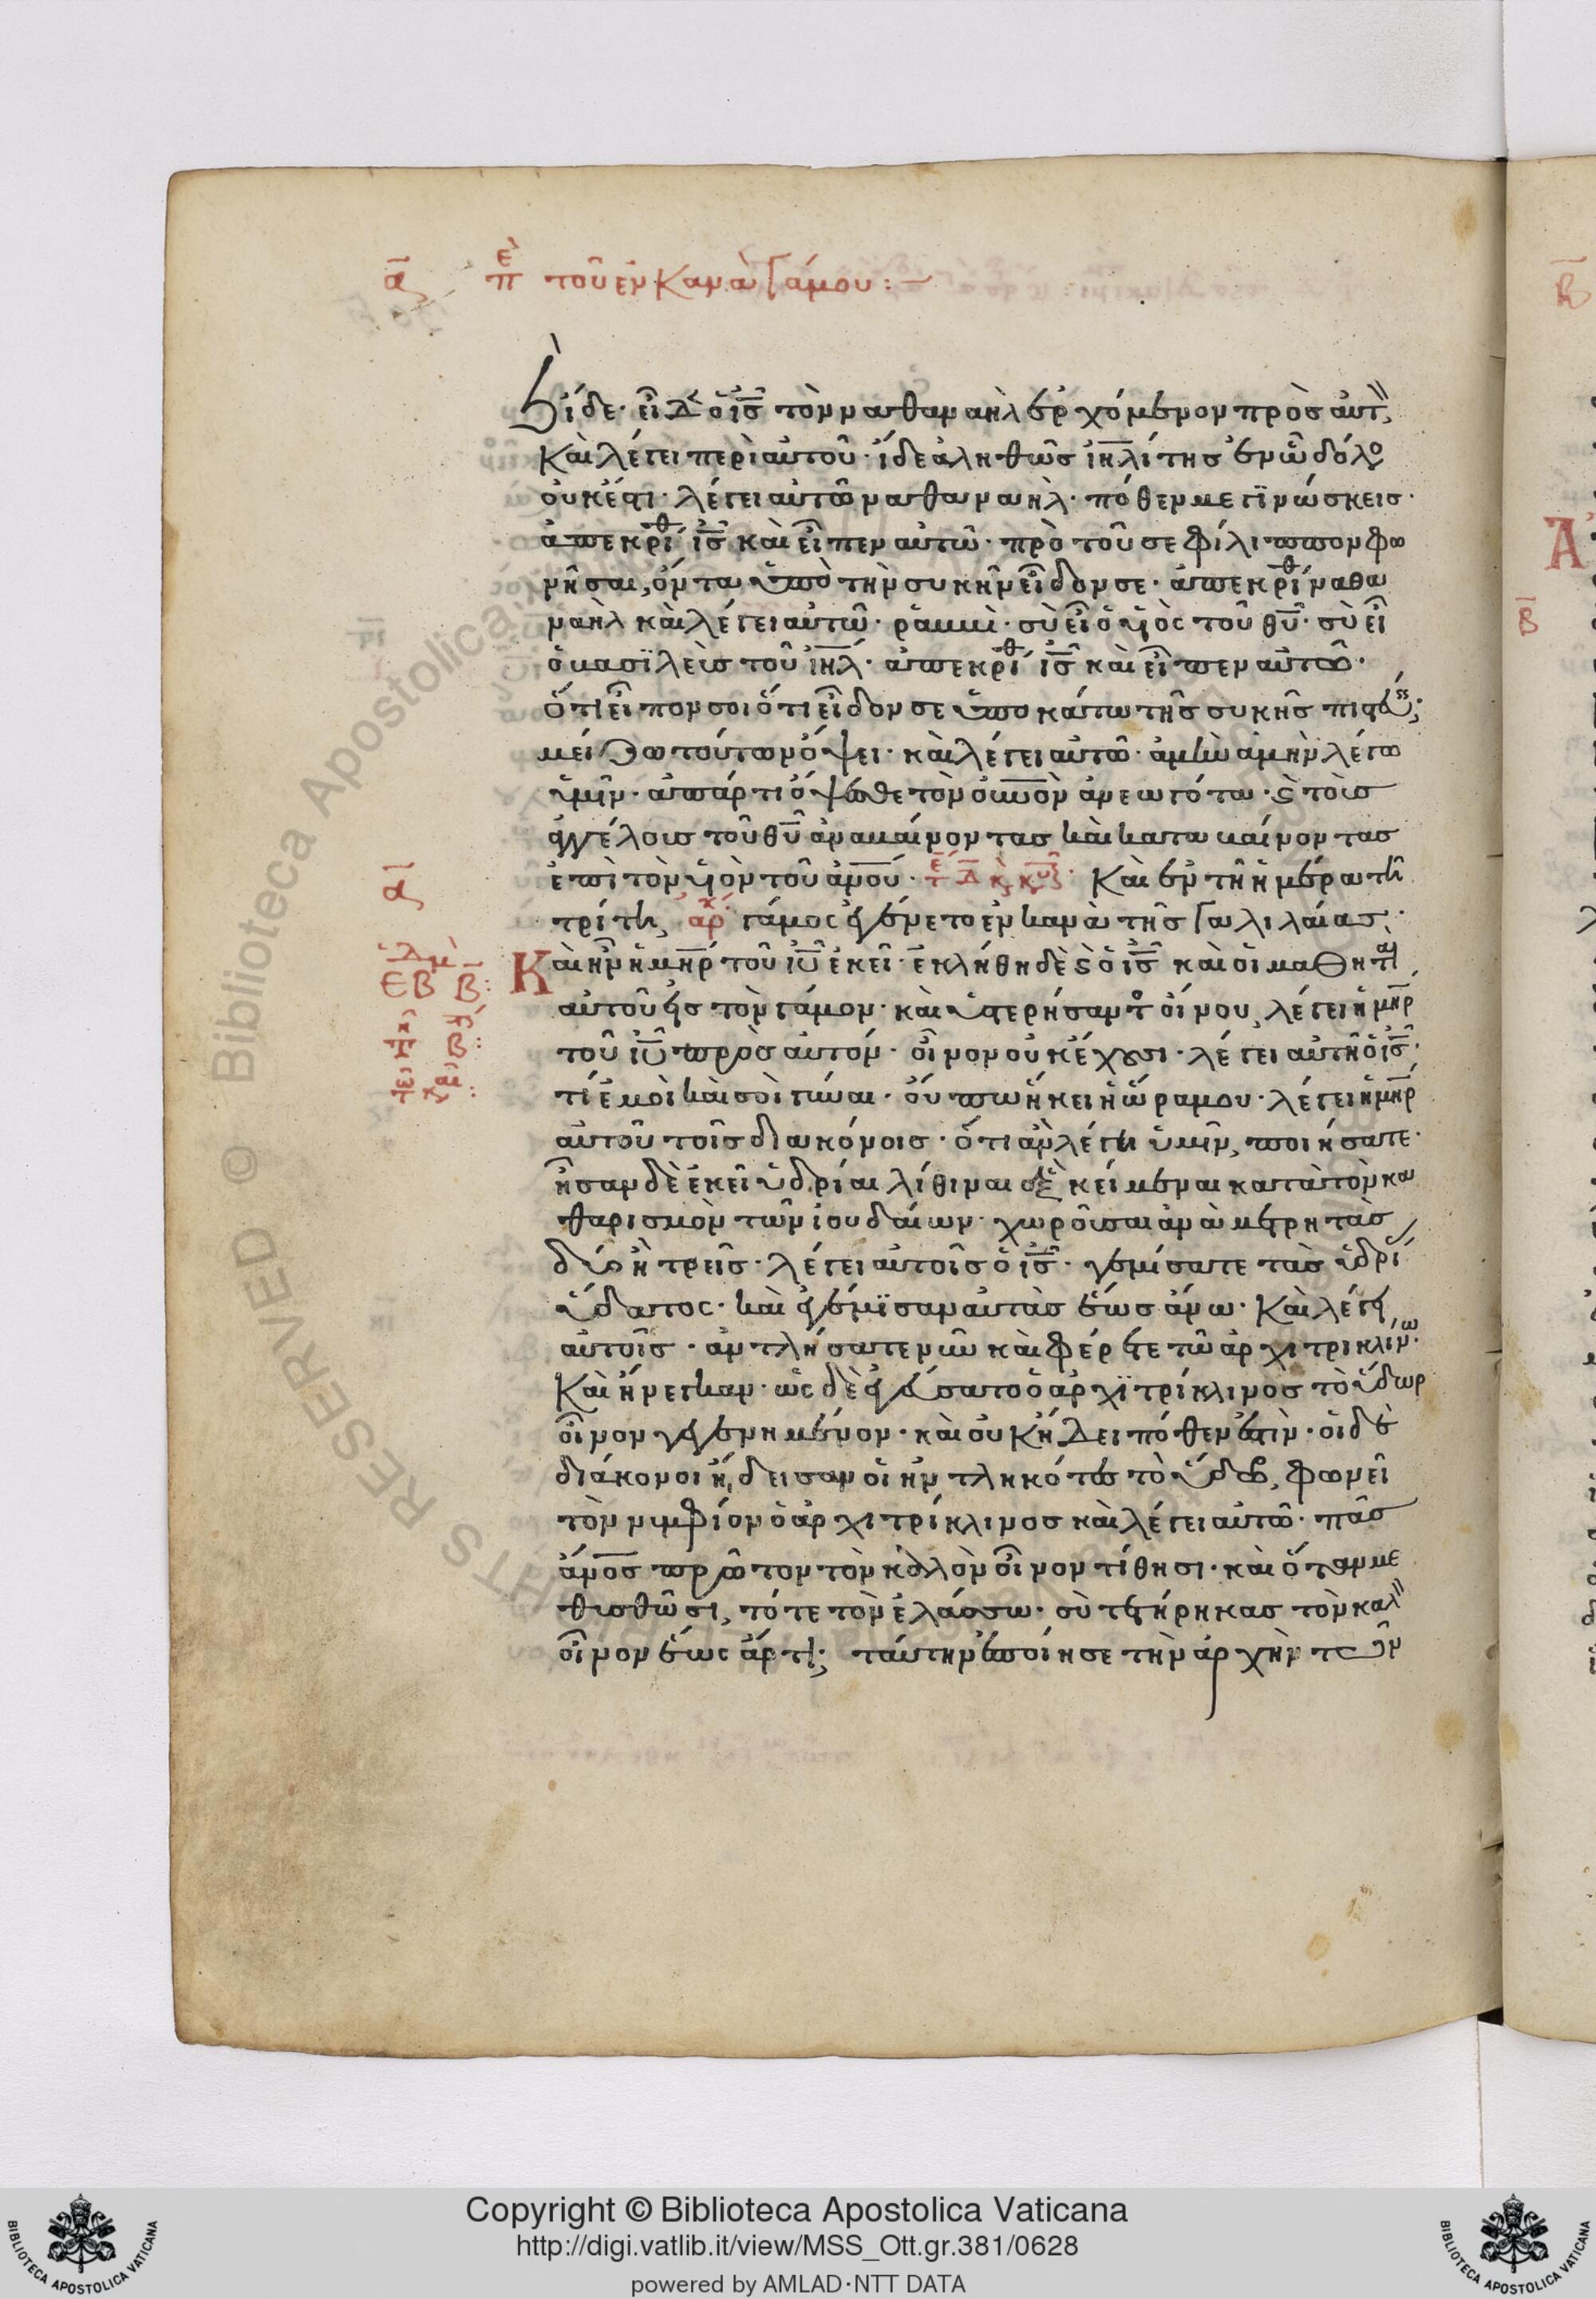 α περὶ τοῦ ἐν Κανᾶ Γάμου:—
ἴδε· εἶδ ὁ ις τὸν ναθαναὴλ ἐρχόμενον πρὸς αὐτ
Καὶ λέγει περὶ αὐτοῦ· ἴδε ἀληθῶς ιηλίτης ἐν ὧ δόλο
οὐκ ἔστι· λέγει αὐτῶ ναθαναήλ· πόθεν με γϊνώσκεις·
ἀπεκρίθ ις καὶ εἶπεν αὐτῶ· πρὸ τοῦ σε φίλιππον φω
νῆσαι, ὄντα ὑπὸ τὴν συκῆν εἶδον σε· ἀπεκρίθ ναθα
ναὴλ καὶ λέγει αὐτῶ· ῥαββὶ· σὺ εἶ ὁ υἱὸς τοῦ θυ· σὺ εἶ
ὁ βασϊλεὺς τοῦ ιηλ· ἀπεκρίθ ις καὶ εἶπεν αὐτῶ·
ὅτι εἶπον σοι ὅτι εἶδον σε ὑποκάτω τῆς συκῆς πιστεύεις;
μείζω τούτων ὄψει· καὶ λέγει αὐτῶ· ἀμὴν ἀμὴν λέγω
ὑμῖν· ἀπάρτι ὄψεσθε τὸν ουνον ἀνεωγότα· ϛ τοὺς
ἀγγέλους τοῦ θυ ἀναβαίνοντας καὶ καταβαίνοντας
ἐπὶ τὸν υἱὸν τοῦ ανου· Καὶ ἐν τῆ ἡμέρα τῆ
τρίτη, ἀρχ γάμος ἐγένετο ἐν κανᾶ τῆς Γαλιλαίας·
Καὶ ἦν ἡ μηρ τοῦ ιυ ἐκεῖ· ἐκλήθη δὲ ϛ ὁ ις καὶ οἱ μαθηταὶ
αὐτοῦ εἰς τὸν γάμον· καὶ ὑστερήσαντο οἴνου, λέγει ἡ μηρ
τοῦ ιυ πρὸς αὐτόν· οἶνον οὐκ ἔχουσι· λέγει αὐτῆ ὁ ις·
τί ἐμοὶ καὶ σοὶ γύναι· οὔπω ἥκει ἡ ὥρα μου· λέγει ἡ μηρ
αὐτοῦ τοῖς διακόνοις· ὅτι ἂν λέγη ὑμῖν, ποιήσατε·
ἦσαν δὲ ἐκεῖ ὑδρίαι λίθιναι ἓξ κείμεναι κατὰ τὸν κα
θαρισμὸν τῶν ἰουδαίων· χωροῦσαι ἀνὰ μετρητὰς
δύο ἢ τρεῖς· λέγει αὐτοῖς ὁ ις· γεμίσατε τὰς ὑδρί
ὕδατος· καὶ ἐγέμϊσαν αὐτὰς ἕως ἄνω· Καὶ λέγει
αὐτοῖς· ἀντλήσατε νῦν καὶ φέρετε τῶ ἀρχιτρικλίνω·
Καὶ ἤνεγκαν· ὡς δὲ ἐγεύσατο ὁ ἀρχϊτρίκλινος τὸ ὕδωρ
οἶνον γεγενημένον· καὶ οὐκ ἤδει πόθεν ἐστὶν· οἱ δὲ
διάκονοι ἤδεισαν οἱ ἠντληκότες τὸ ὕδωρ, φωνεῖ
τὸν νυμφίον ὁ ἀρχιτρίκλινος καὶ λέγει αὐτῶ· πᾶς
ανος πρῶτον τὸν καλὸν οἶνον τίθησι· καὶ ὅταν με
θυσθῶσι, τότε τὸν ἐλάσσω· σὺ τετήρηκας τὸν καλ
οἶνον ἕως ἄρτι; ταύτην ἐποίησε τὴν ἀρχὴν τῶν
Biblioteca Apostolica
RESERVED © Biblioteca Apostolica
Copyright © Biblioteca Apostolica Vaticana
http://digi.vatlib.it/view/MSS_Ott.gr.381/0628
powered by AMLAD·NTT DATA
BIBLIOTECA APOSTOLICA VATICANA
BIBLIOTECA APOSTOLICA VATICANA